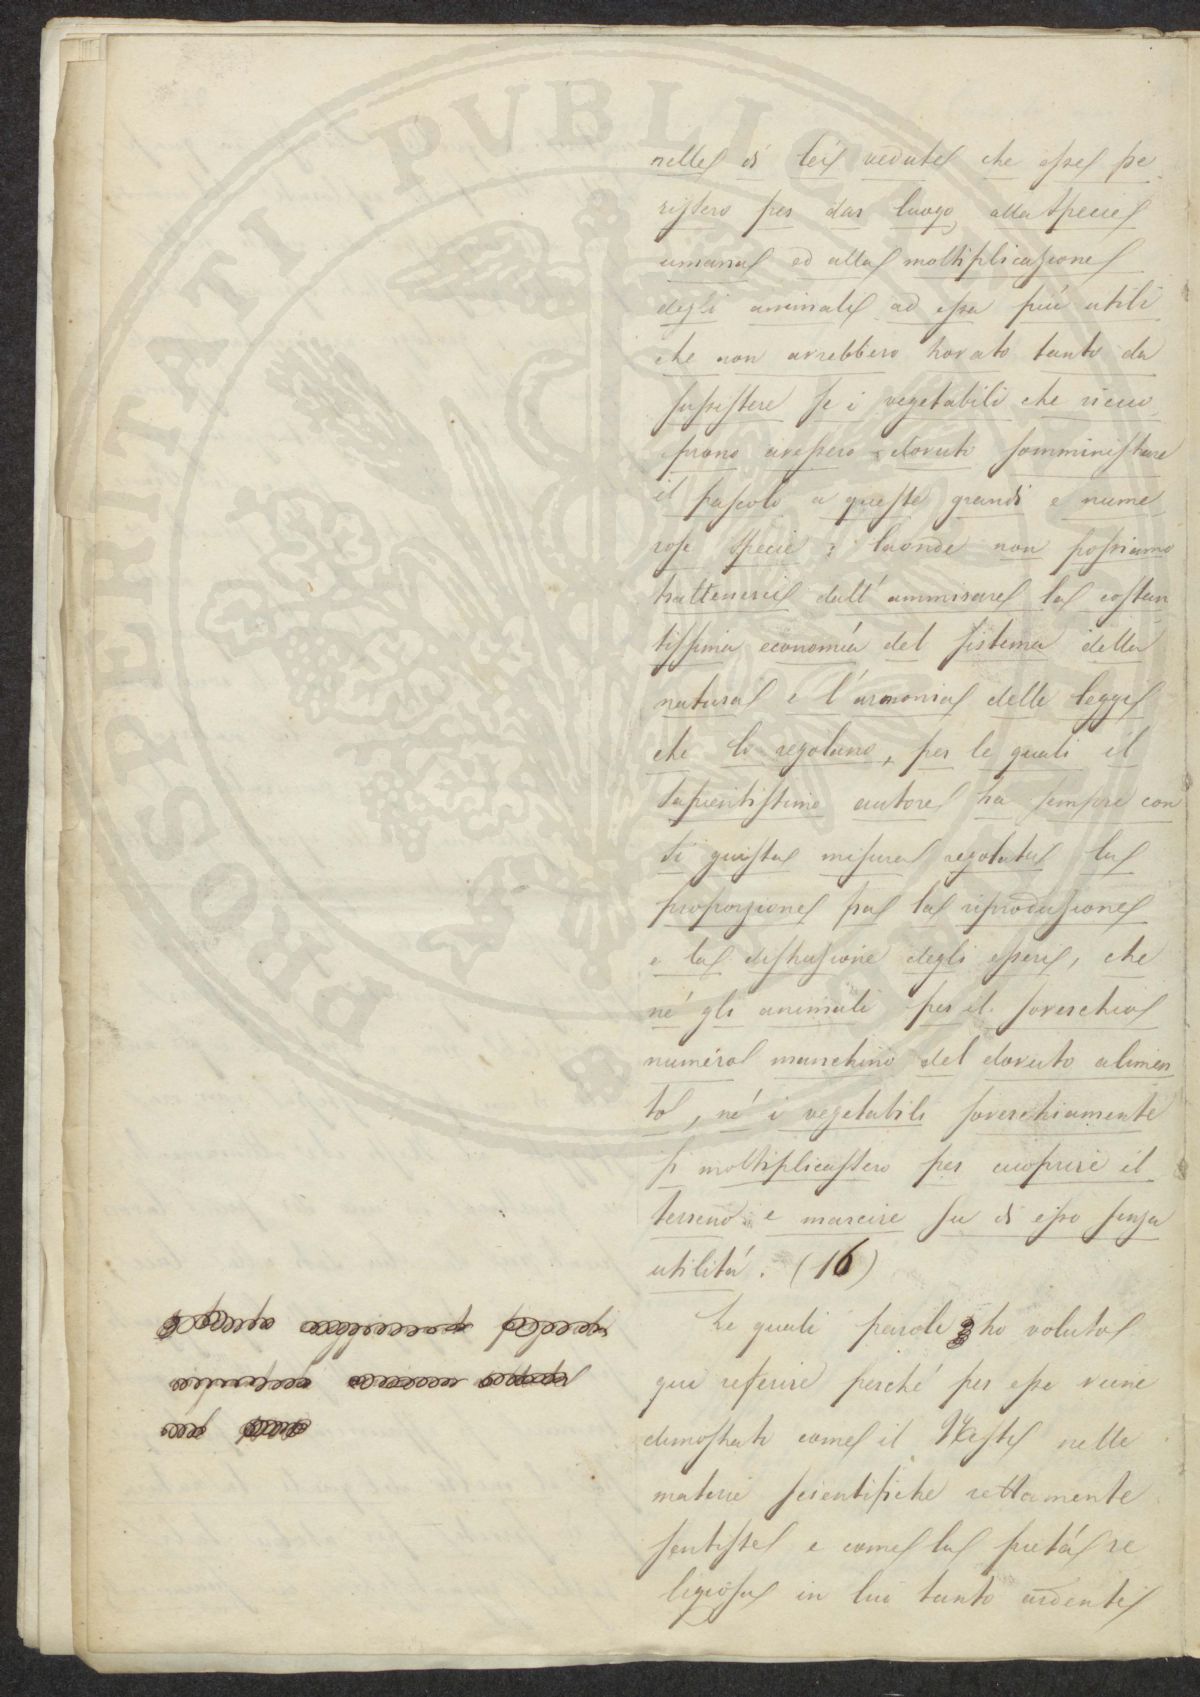 PROSPERITATI PVBLICAE
nelle di lei vedute che esse pe
rissero per dar luogo alla specie
umana ed alla moltiplicazione
degli animali ad essa più utili
che non avrebbero trovato tanto da
sussistere se i vegetabili che ricuo
prono avessero dovuto somministrare
il pascolo a queste grandi e nume
rose specie; laonde non possiamo
trattenerci dall'ammirare la costan
tissima economia del sistema della
natura e l'armonia delle leggi
che lo regolano, per le quali il
sapientissimo autore ha sempre con
di giusta misura regolata la
proporzione fra la riproduzione
e la distruzione degli esseri, che
né gli animali per il soverchio
numero manchino del dovuto alimen
to, né i vegetabili soverchiamente
si moltiplicassero per cuoprire il
terreno e marcire su di esso senza
utilità. (16)
Le quali parole ho voluto
qui referire perché per esse viene
dimostrato come il Nesti nelle
materie scientifiche rettamente
sentisse e come la pietà re
ligiosa in lui tanto ardente